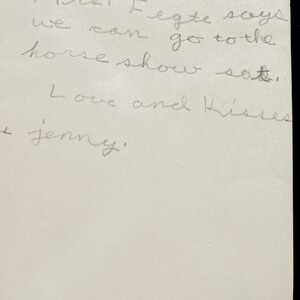 Mrs. Fegte says
we can go to the
horse show sat.
Love and Kisses
jenny.